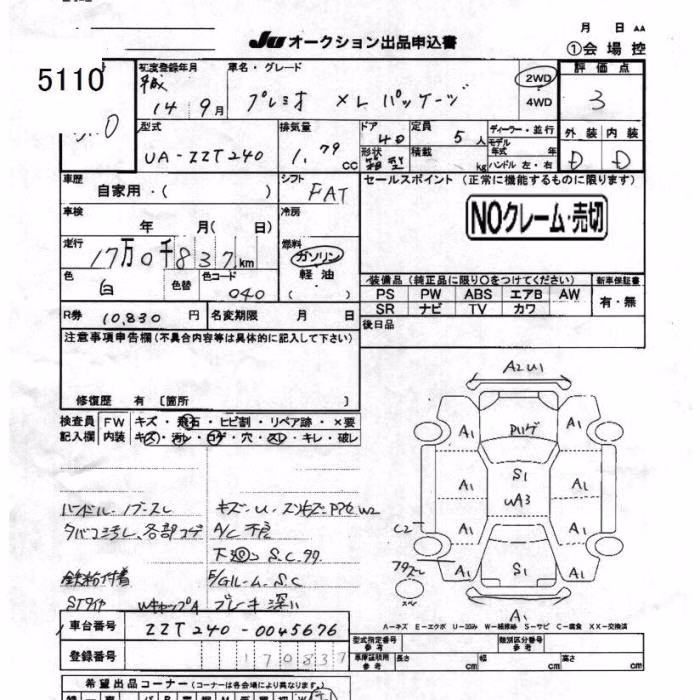 月 日 AA
Ju オークション出品申込書
①会場控
5110
初度登録年月
平成
14年9月
車名・グレード
プレミオ XLパッケージ
2WD
4WD
評価点
3
外装 内装
D D
型式
UA-ZZT240
排気量
1.79 CC
ドア 4D
形状 箱型
定員 5人
積載 kg
ディーラー・並行
モデル年式 年
ハンドル 左・右
車歴
自家用・( )
シフト
FAT
セールスポイント (正常に機能するものに限ります)
NOクレーム・売切
車検
年 月( 日)
冷房
走行
17万0千837km
燃料
ガソリン
軽油
( )
色
白
色替
色コード
040
装備品 (純正品に限り○をつけてください)
新車保証書
PS PW ABS エアB AW
有・無
SR ナビ TV カワ
R券 10,830 円
名変期限 月 日
後日品
注意事項申告欄 (不具合内容等は具体的に記入して下さい)
修復歴 有 〔箇所 〕
検査員記入欄
FW キズ・飛石・ヒビ割・リペア跡・×要
内装 キズ・汚レ・コゲ・穴・スレ・キレ・破レ
A2U1
A1 P11ゲ A1
A1 S1 A1
UA3
A1 A1
C2
A1 S1 A1
79スレ
A1
ハンドル・ノブスレ
キズ・U・スリキズ・PPは W2
タバコ汚レ、各部コゲ
A/C不良
下廻り S.C.99.
鉄粉付着
F/Gルーム S.C
STタイヤ WキャップA
ブレーキ深い
A-キズ E-エクボ U-凹み W-補修跡 S-サビ C-腐食 XX-交換済
車台番号
ZZT240-0045676
登録番号
170837
型式指定番号
参考
類別区分番号
参考
車庫証明用
参考
長さ cm 幅 cm 高さ cm
希望出品コーナー (コーナーは各会場により異なります)